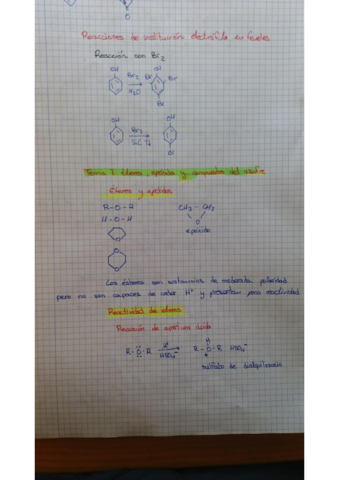 O
Reacciones de sustitución electrófila en fenoles
Reacción con Br2
OH
Br2
H2O
OH
Br
Br
Br
OH
Br2
OH
Br
Tema 7: Éteres, epóxidos y compuestos del azufre
Éteres y epóxidos
R-O-R
H-O-H
CH2 - CH2
O
epóxido
O
O
O
Los éteres son sustancias de moderada polaridad
pero no son capaces de ceder H+ y presentan poca reactividad
Reactividad de éteres
Reacción de apertura ácida
R-O-R
H+
HSO4-
H
R-O-R HSO4-
sulfato de dialquiloxonio